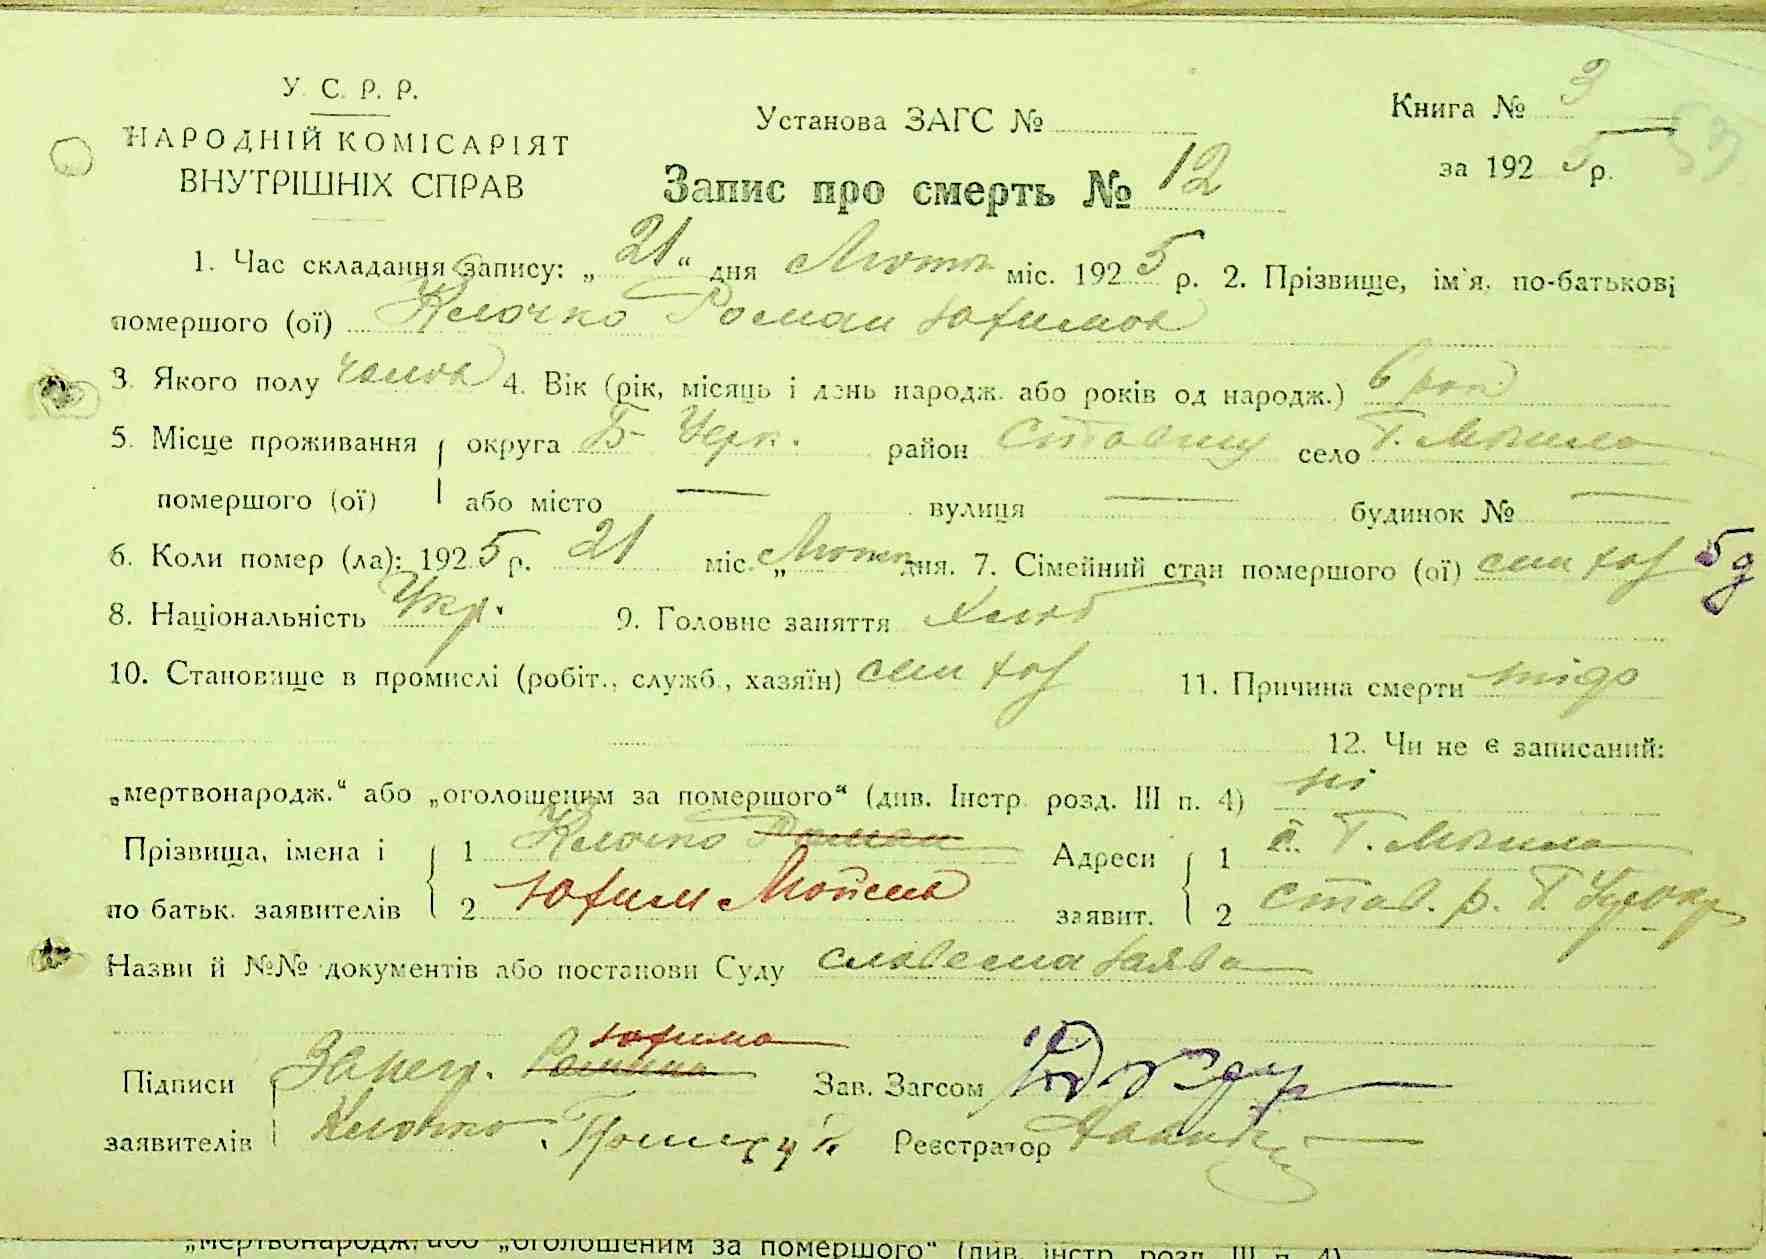 У. С. Р. Р.
НАРОДНІЙ КОМІСАРІЯТ
ВНУТРІШНІХ СПРАВ
Установа ЗАГС №
Книга № 3
за 192 5 р.
53
Запис про смерть № 12
1. Час складання запису: „ 21 “ дня Лютого міс. 192 5 р. 2. Прізвище, ім'я, по-батькові
помершого (ої) Клочко Роман Юхимов
3. Якого полу чолов 4. Вік (рік, місяць і день народж. або років од народж.) 6 рок
5. Місце проживання округа Б-Церк. район Ставищ село Г. Могила
помершого (ої) або місто — вулиця — будинок № —
6. Коли помер (ла): 192 5 р. 21 міс. „ Лютого дня. 7. Сімейний стан помершого (ої) син хаз 5д
8. Національність Укр. 9. Головне заняття Хліб
10. Становище в промислі (робіт., служб., хазяїн) син хаз 11. Причина смерти
12. Чи не є записаний:
„мертвонародж.“ або „оголошеним за помершого“ (див. Інстр. розд. III п. 4) ні
Прізвища, імена і 1 Клочко Роман Адреси 1 с. Г. Могила
по батьк. заявителів 2 Юхим Мойсеів заявит. 2 Став. р. Б. Церк
Назви й №№ документів або постанови Суду словесна заява
Юхима
Підписи Занегр. Романа Зав. Загсом
заявителів Клочко, Реєстратор
„мертвонародж.“ або „оголошеним за помершого“ (див. інстр. розд. III п. 4)